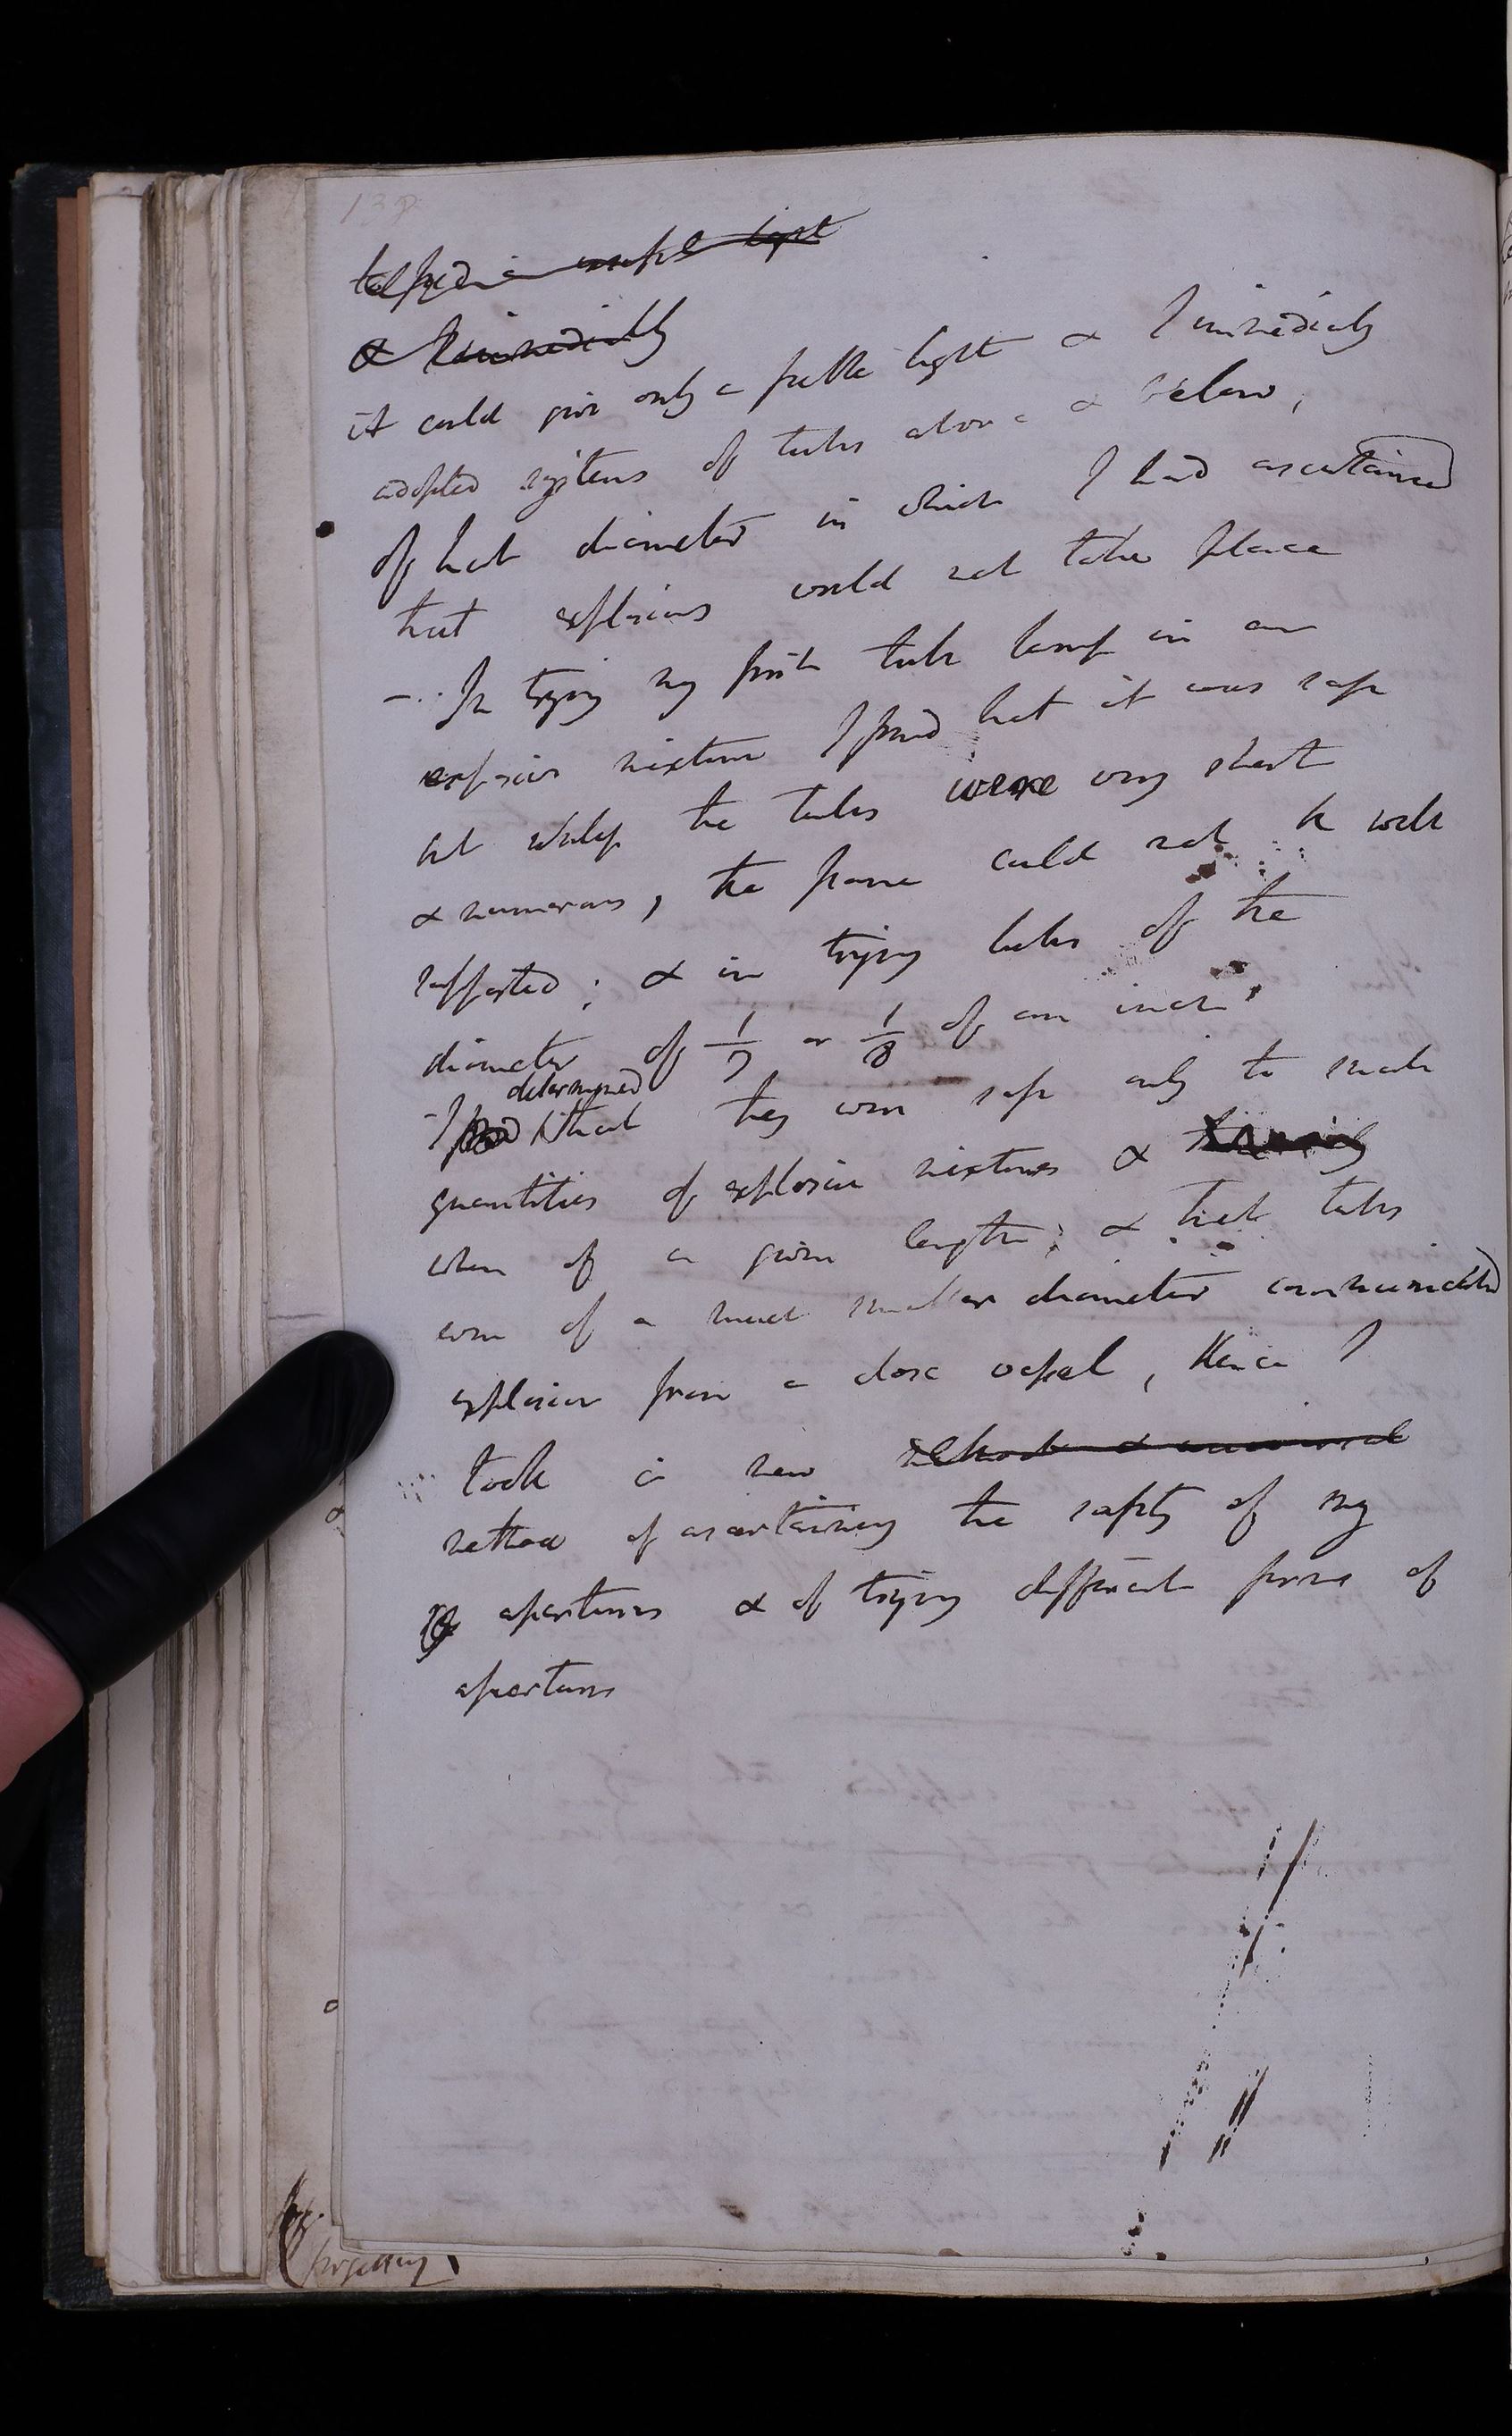 138
& I immediately
it could give only a feeble light & I immediately
adopted systems of tubes above & below,
of that diameter in which I had ascertained
that explosions would not take place
- In trying my first tube lamp in an
explosive mixture I found that it was safe
but unless the tubes were very short
& numerous, the flame could not be well
supported; & in trying tubes of the
diameter of 1/7 or 1/8 of an inch
determined
- I found that they were safe only to small
quantities of explosive mixtures &
when of a given length; & that tubes
even of a much smaller diameter communicated
explosion from a close vessel, Hence I
took a new
method of ascertaining the safety of my
apertures & of trying different forms of
apertures
forgetting